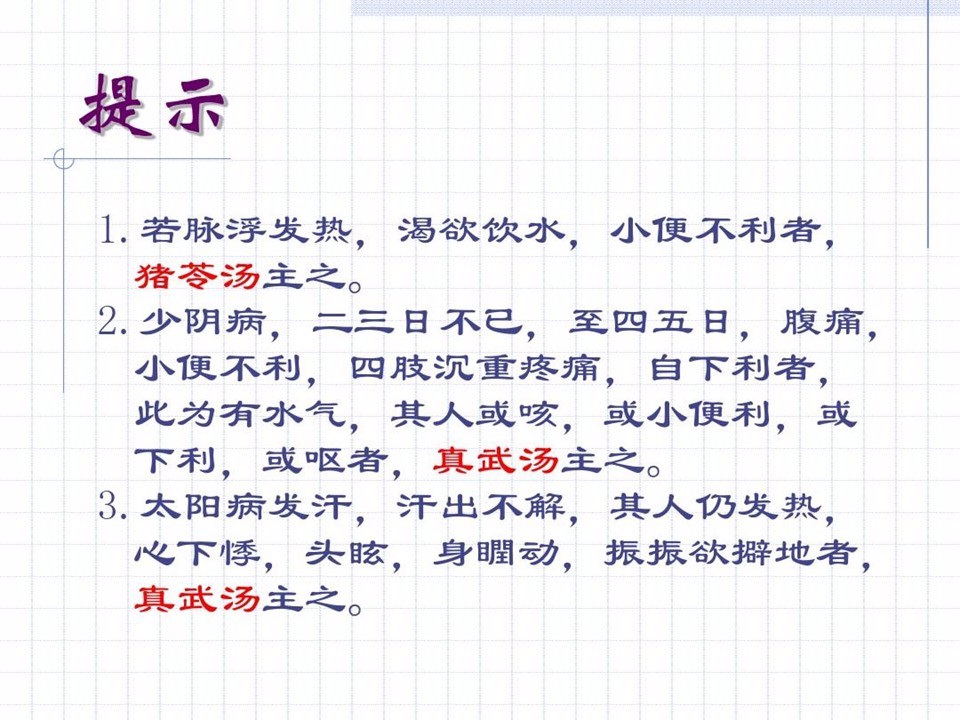 提示
1. 若脉浮发热，渴欲饮水，小便不利者，
猪苓汤主之。
2. 少阴病，二三日不已，至四五日，腹痛，
小便不利，四肢沉重疼痛，自下利者，
此为有水气，其人或咳，或小便利，或
下利，或呕者，真武汤主之。
3. 太阳病发汗，汗出不解，其人仍发热，
心下悸，头眩，身瞤动，振振欲擗地者，
真武汤主之。